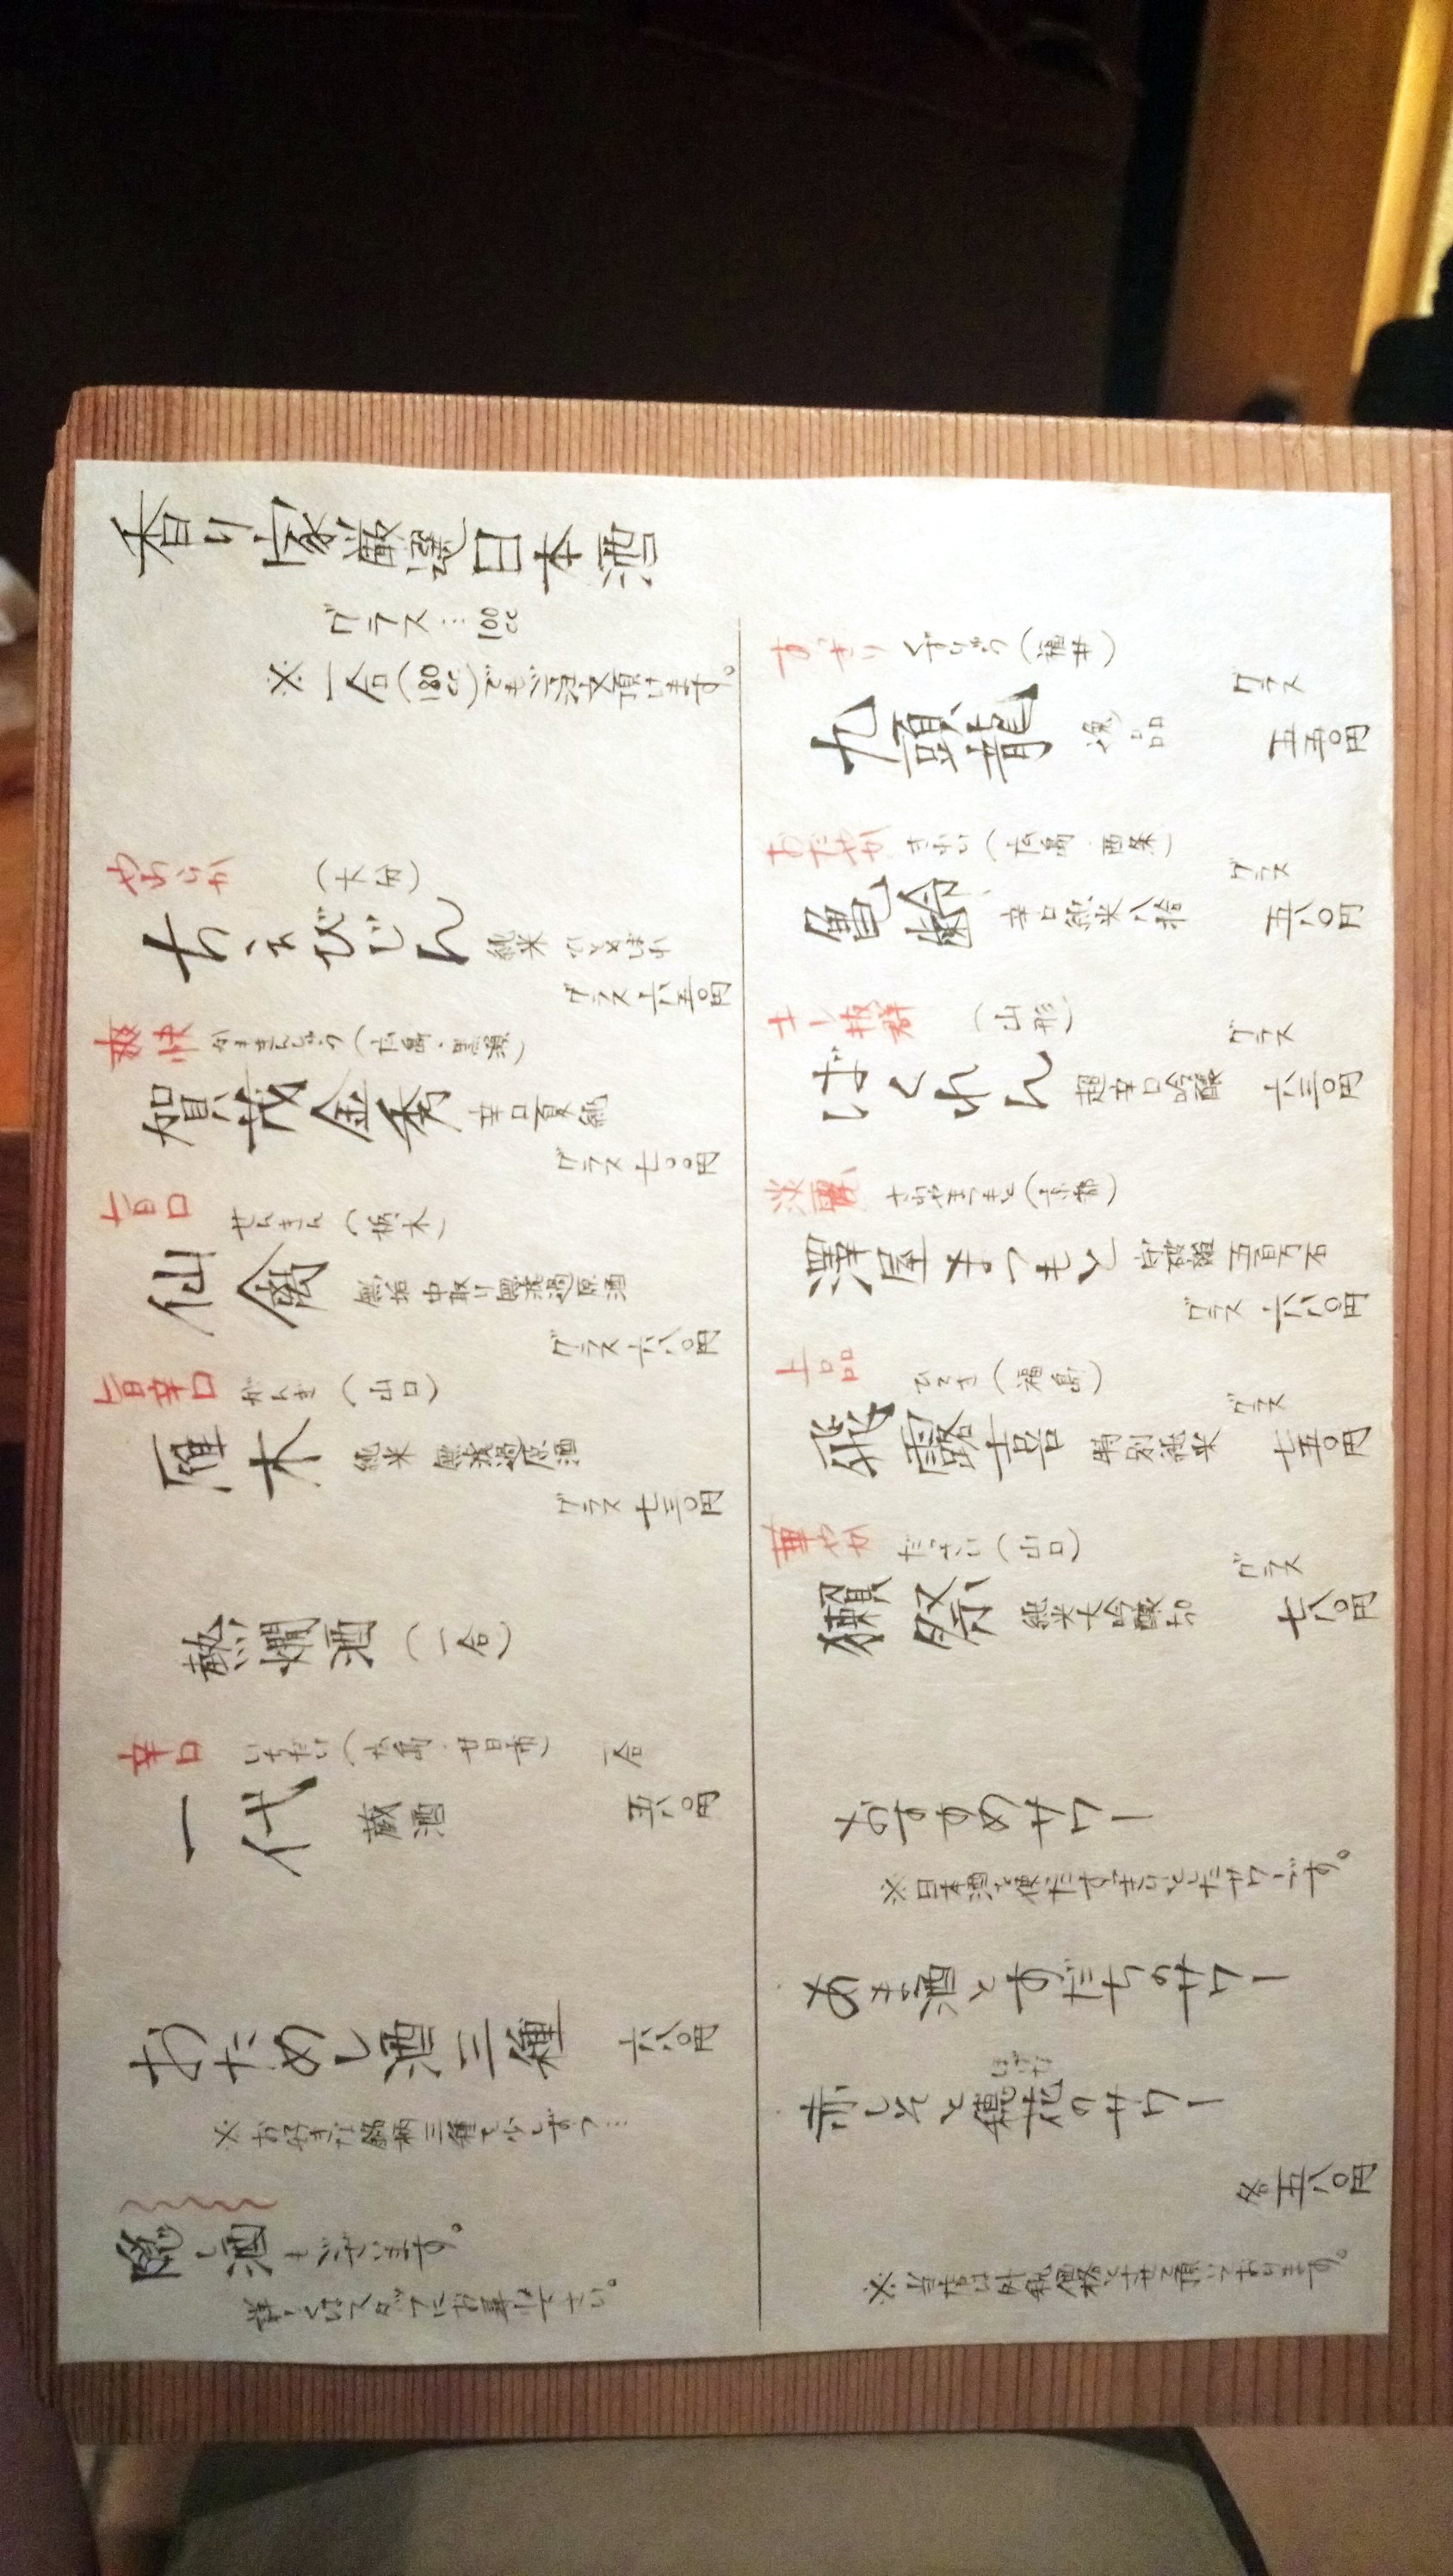 香り家厳選日本酒
グラス…100cc
※一合(180cc)でもご注文頂けます。
やわらか
(大分)
ちえびじん 純米 ひとめぼれ
グラス 六五〇円
爽快 かもきんしゅう(広島・黒瀬)
賀茂金秀 辛口夏純
グラス 七〇〇円
旨口 せんきん(栃木)
仙禽 無垢 中取り無濾過原酒
グラス 六八〇円
旨辛口 がんぎ(山口)
雁木 純米 無濾過原酒
グラス 七三〇円
熱燗酒(一合)
辛口 いちだい(広島・廿日市) 一合
一代 蔵酒 五八〇円
おためし酒三種 六八〇円
※お好きな銘柄三種で少しずつ…
隠し酒もございます。
詳しくはスタッフにお尋ね下さい。
すっきり くずりゅう(福井) グラス
九頭龍 逸品 五五〇円
おだやか きれい(広島・西条) グラス
亀齢 辛口純米八拾 五八〇円
キレ抜群 (山形) グラス
ばくれん 超辛口吟醸 六三〇円
淡麗 さわやまつもと(京都)
澤屋まつもと 守破離 五百万石
グラス 六八〇円
上品 ひろき(福島) グラス
飛露喜 特別純米 七五〇円
華やか だっさい(山口) グラス
獺祭 純米大吟醸50 七八〇円
おすすめサワー
※日本酒を使ったすっきりとしたサワーです。
・あま酒とすだちのサワー
・赤しそと穂花のサワー
各五八〇円
※当店は外税価格とさせて頂いております。